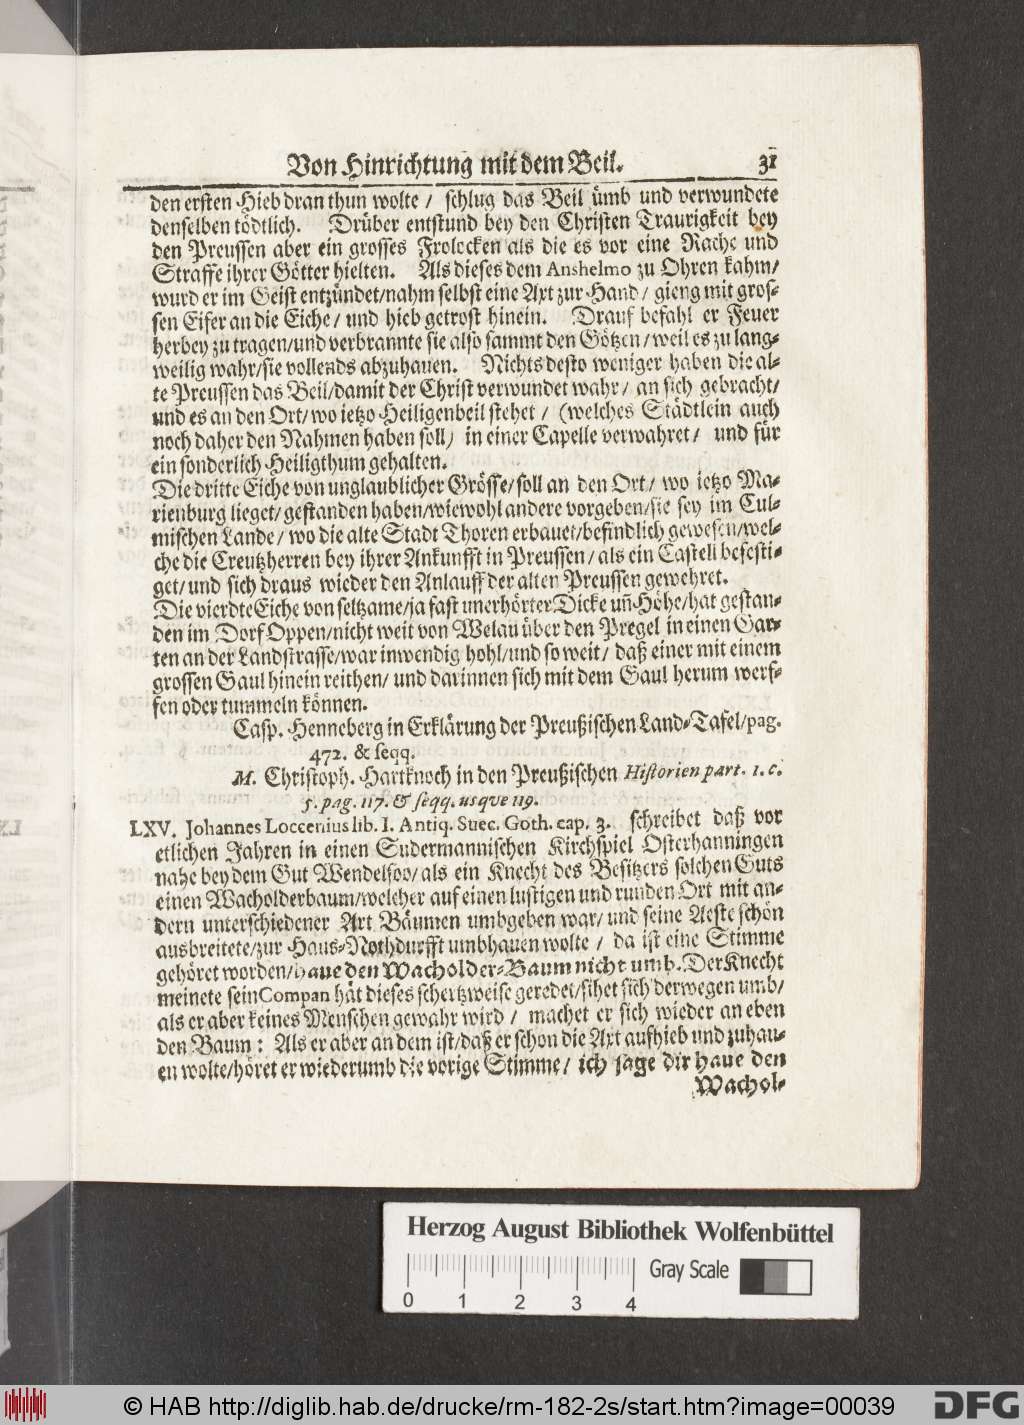 Von Hinrichtung mit dem Beil. 31
den ersten Hieb dran thun wolte / schlug das Beil ümb und verwundete
denselben tödtlich. Drüber entstund bey den Christen Traurigkeit bey
den Preussen aber ein grosses Frolocken als die es vor eine Rache und
Straffe ihrer Götter hielten. Als dieses dem Anshelmo zu Ohren kahm/
wurd er im Geist entzündet/nahm selbst eine Axt zur Hand / gieng mit gros-
sen Eifer an die Eiche / und hieb getrost hinein. Drauf befahl er Feuer
herbey zu tragen/und verbrannte sie also sammt den Götzen / weil es zu lang-
weilig wahr/sie vollends abzuhauen. Nichts desto weniger haben die al-
te Preussen das Beil/damit der Christ verwundet wahr / an sich gebracht/
und es an den Ort/wo ietzo Heiligenbeil stehet / (welches Städtlein auch
noch daher den Nahmen haben soll) in einer Capelle verwahret / und für
ein sonderlich Heiligthum gehalten.
Die dritte Eiche von unglaublicher Grösse/soll an den Ort / wo ietzo Ma-
rienburg lieget/gestanden haben/wiewohl andere vorgeben/sie sey im Cul-
mischen Lande / wo die alte Stadt Thoren erbauet/befindlich gewesen/wel-
che die Creutzherren bey ihrer Ankunfft in Preussen / als ein Castell befesti-
get/und sich draus wieder den Anlauff der alten Preussen gewehret.
Die vierdte Eiche von seltzame/ja fast unerhörter Dicke uñ Höhe/hat gestan-
den im Dorf Oppen/nicht weit von Welau über den Pregel in einen Gar-
ten an der Landstrasse/war inwendig hohl/und so weit / daß einer mit einem
grossen Gaul hinein reithen / und darinnen sich mit dem Gaul herum werf-
fen oder tummeln können.
Casp. Henneberg in Erklärung der Preußischen Land-Tafel/pag.
472. & seqq.
M. Christoph. Hartknoch in den Preußischen Historien part. 1. c.
5. pag. 117. & seqq. usque 119.
LXV. Johannes Loccenius lib. I. Antiq. Suec. Goth. cap. 3. schreibet daß vor
etlichen Jahren in einen Sudermannischen Kirchspiel Osterhanningen
nahe bey dem Gut Wendelsoo/als ein Knecht des Besitzers solchen Guts
einen Wacholderbaum/welcher auf einen lustigen und runden Ort mit an-
dern unterschiedener Art Bäumen umbgeben war/und seine Aeste schön
ausbreitete/zur Haus-Nothdurfft umbhauen wolte / da ist eine Stimme
gehöret worden/haue den Wacholder-Baum nicht umb. Der Knecht
meinete sein Compan hät dieses schertzweise geredet/sihet sich derwegen umb/
als er aber keines Menschen gewahr wird / machet er sich wieder an eben
den Baum : Als er aber an dem ist/daß er schon die Axt aufhieb und zuhau-
en wolte/höret er wiederumb die vorige Stimme / ich sage dir haue den
Wachol-
Herzog August Bibliothek Wolfenbüttel
Gray Scale
0 1 2 3 4
© HAB http://diglib.hab.de/drucke/rm-182-2s/start.htm?image=00039
DFG